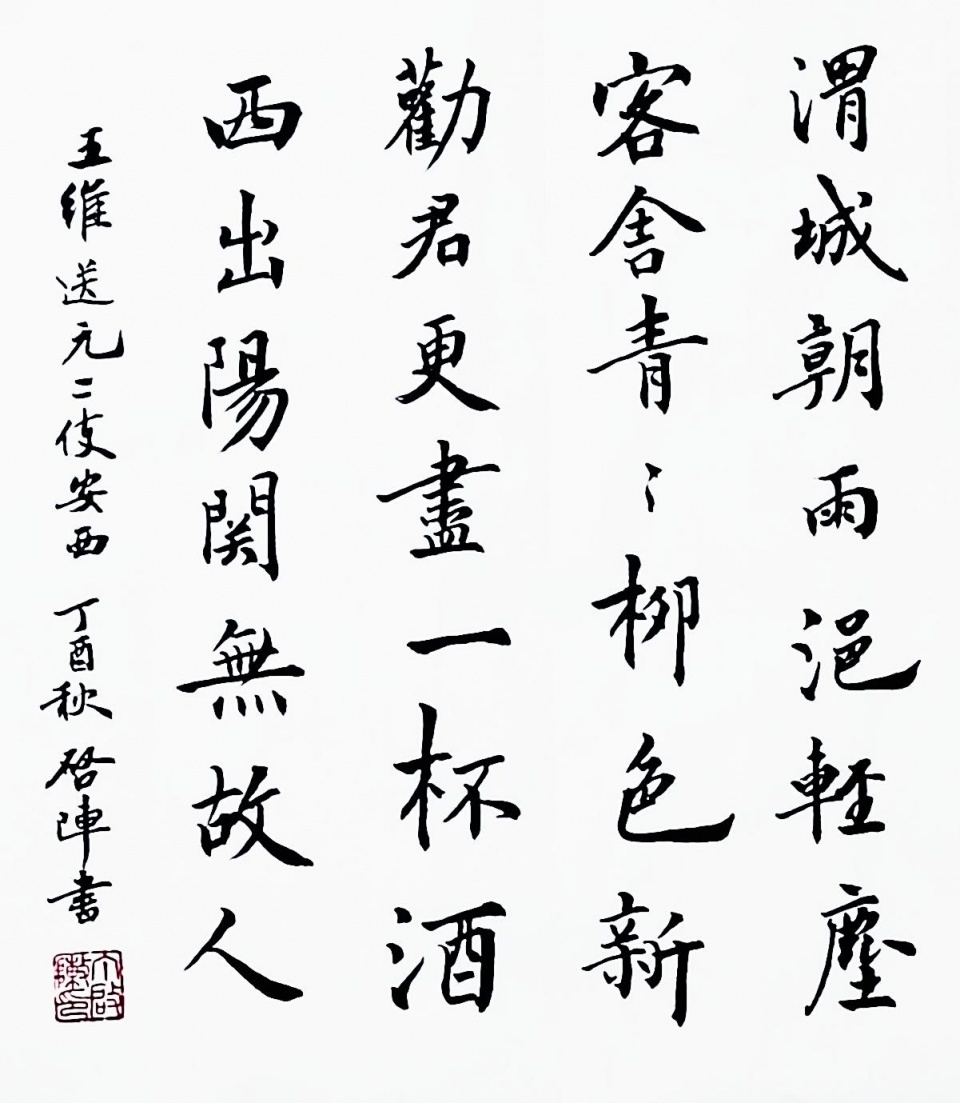 渭城朝雨浥輕塵
客舍青〻柳色新
勸君更盡一杯酒
西出陽関無故人
王維送元二使安西 丁酉秋 啓陣書